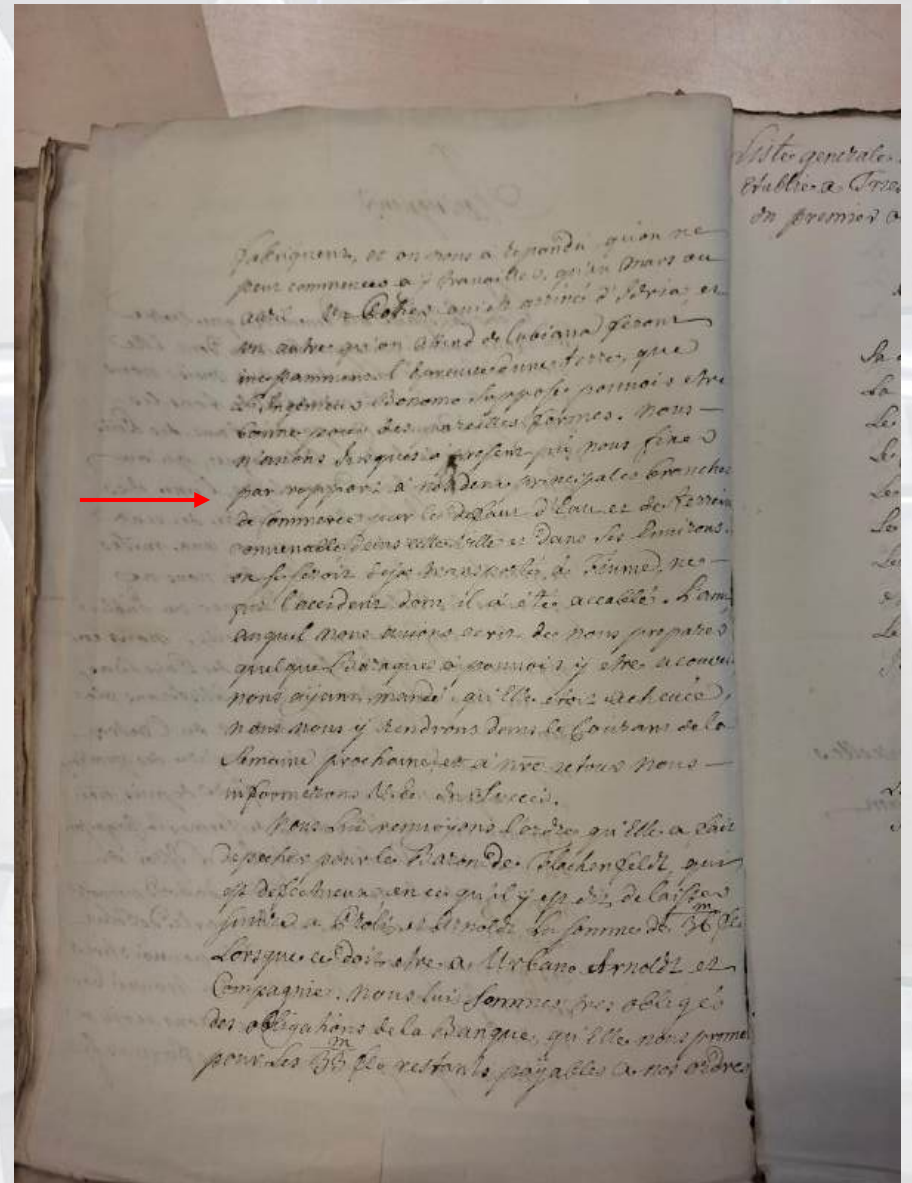 fabriquent, et on nous a repondu, qu'on ne
peut commencer a y travailler, qu'en Mars ou
avril. Un Potier qui est arrivé d'Idria, et
un autre qu'on attend de Lubiana feront
incessamment l'epreuve d'une terre, que
l'Ingenieur Bonomo suppose pouvoir etre
bonne pour des pareilles formes. Nous
n'avons jusques à present pû nous fixer
par rapport à nos deux principales branches
de Commerce par le defaut d'Eau et de terrein
convenable dans cette Ville et dans ses Environs.
on se seroit deja transporté, à Fiume,
l'accident dont il a été accablé. L'ami
auquel nous avons ecrit de nous preparer
quelque Baraque à pouvoir y etre a couvert
nous aÿant mandé qu'Elle etoit achevée,
nous nous y rendrons dans le Courant de la
Semaine prochaine, et à nre retour nous
informerons du Succès.
Nous Lui renvoyons l'ordre qu'Elle a fait
depecher pour le Baron de Flachenfeldt, qui
est defectueux en ce qu'il y est dit, de laisser
a Proli, et Arnoldt la somme de 36 fl.
Lorsque ce doit etre a Urbano Arnoldt et
Compagnie. Nous lui sommes tres obligés
des obligations de la Banque, qu'Elle nous promet
pour Les 33 fl. restants paÿables a nos ordres
Liste generale
Etablie a Tries
du premier
La
La
Le
Le
Le
Le